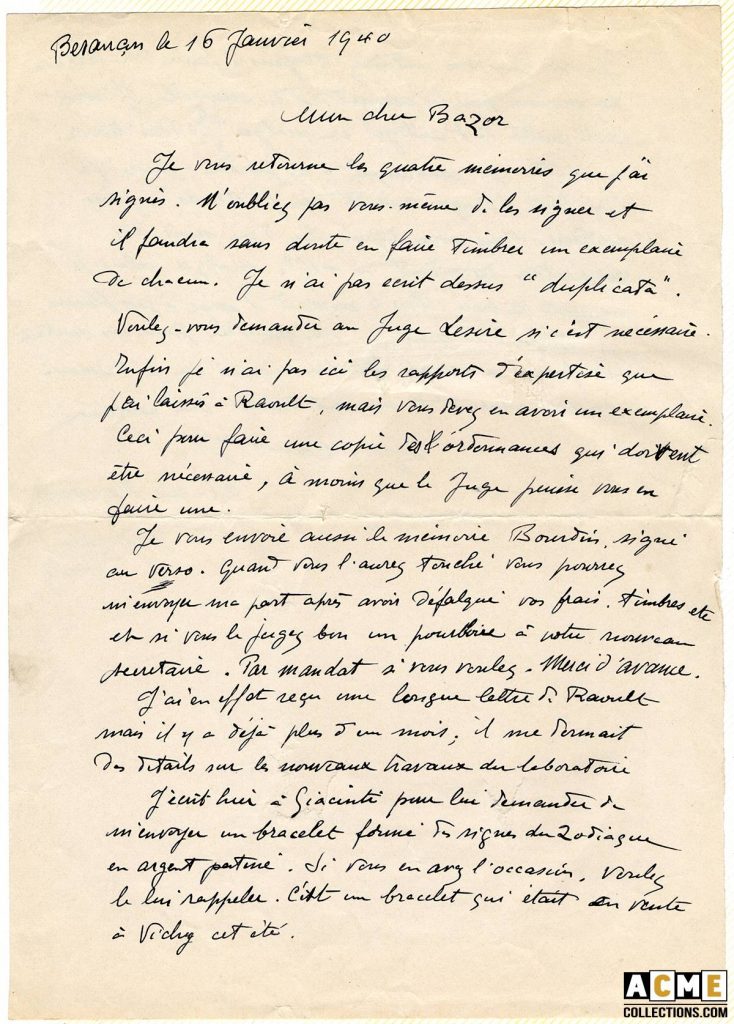 Besançon le 16 Janvier 1940
Mon cher Bazor
Je vous retourne les quatre mémoires que j'ai
signés. N'oubliez pas vous-même de les signer et
il faudra sans doute en faire timbrer un exemplaire
de chacun. Je n'ai pas écrit dessus "duplicata".
Voulez-vous demander au Juge Lesire si c'est nécessaire.
Enfin je n'ai pas ici les rapports d'expertise que
j'ai laissés à Raoult, mais vous devez en avoir un exemplaire.
Ceci pour faire une copie des ordonnances qui doivent
être nécessaire, à moins que le Juge puisse vous en
faire une.
Je vous envoie aussi le mémoire Bourdin, signé
au verso. Quand vous l'aurez touché vous pourrez
m'envoyer ma part après avoir défalqué vos frais, timbres etc
et si vous le jugez bon un pourboire à votre nouveau
secrétaire. Par mandat si vous voulez. Merci d'avance.
J'ai en effet reçu une longue lettre de Raoult
mais il y a déjà plus d'un mois; il me donnait
des détails sur les nouveaux travaux du laboratoire
J'écrit hier à Giacinti pour lui demander de
m'envoyer un bracelet formé des signes du Zodiaque
en argent patiné. Si vous en avez l'occasion, voulez
le lui rappeler. C'est un bracelet qui était en vente
à Vichy cet été.
ACME
COLLECTIONS.COM